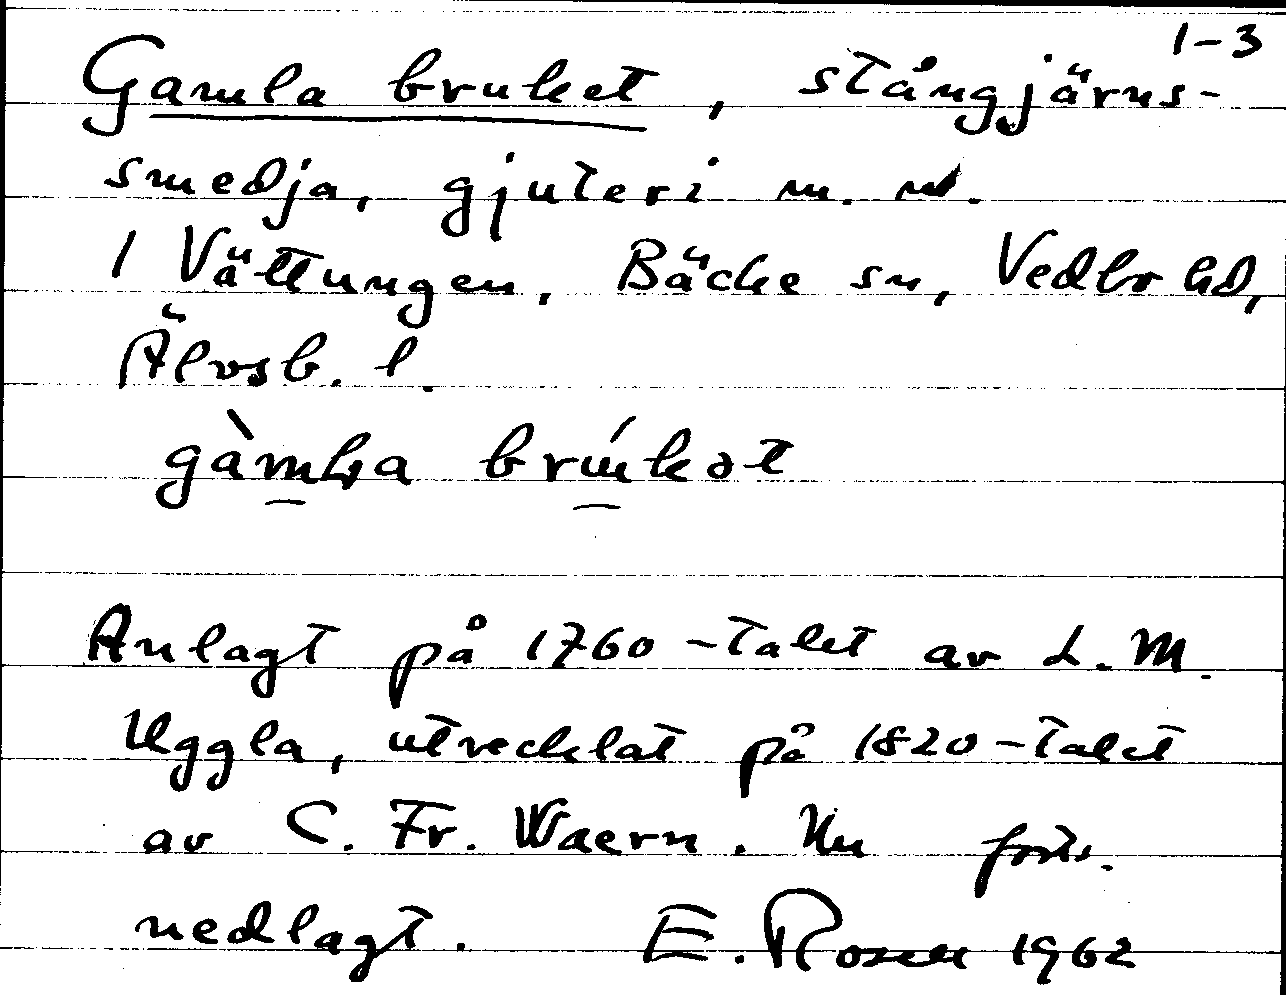 1-3
Gamla bruket, stångjärns-
smedja, gjuteri m. m.
I Vättungen, Bäcke sn, Vedbo hd,
Älvsb. l.
gàmḷa brúkət
Anlagt på 1760-talet av L. M.
Uggla, utvecklat på 1820-talet
av C. Fr. Waern. Nu
nedlagt. E. Rosen 1962